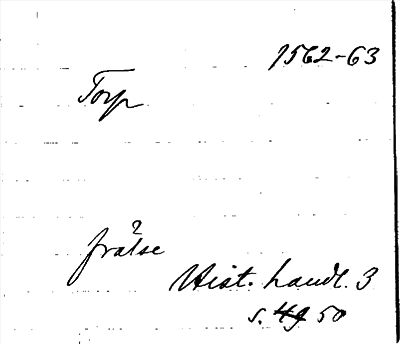 1562-63
Torp
?
frälse
Hist. handl. 3
s. 49 50